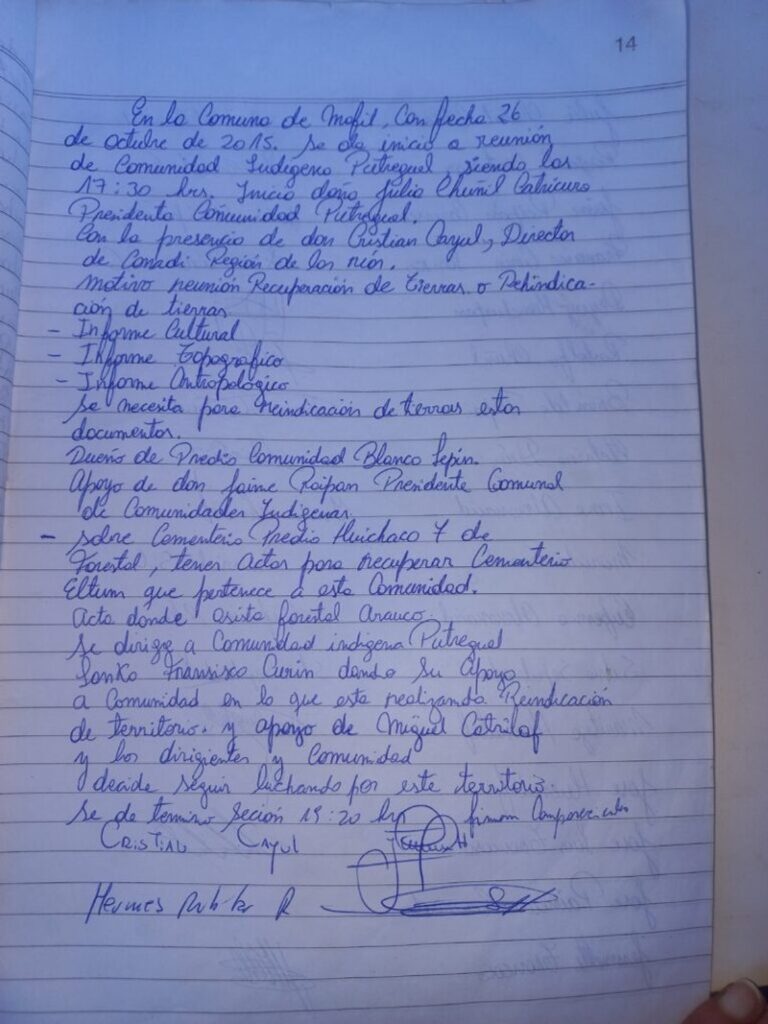 14
En la Comuna de Mafil, Con fecha 26
de octubre de 2015. se da inicio a reunión
de Comunidad Indigena Putregual, siendo las
17:30 hrs. Inicio doña Julia Chuñil Catricura
Presidenta Comunidad Putregual.
Con la presencia de don Cristian Cayul, Director
de Conadi Región de los rios.
motivo reunión Recuperación de tierras o Rehindica-
ación de tierras
- Informe Cultural
- Informe Topografico
- Informe Antropológico
se necesita para reindicación de tierras estos
documentos.
Dueño de Predio Comunidad Blanco Lepin.
Apoyo de don Jaime Raipan Presidente Comunal
de Comunidades Indigenas.
- sobre Cementerio Predio Huichaco 7 de
Forestal, tener Actas para recuperar Cementerio
Eltum que pertenece a esta Comunidad.
Acta donde asista forestal Arauco.
Se dirige a Comunidad indigena Putregual
Lonko Fransisco Curin dando su Apoyo
a Comunidad en lo que esta realizando Reindicación
de territorio. y apoyo de Miguel Catrilaf
y los dirigientes y Comunidad
decide seguir luchando por este territorio.
se da termino Seción 19:20 hrs firman
Cristian Cayul
Hermes